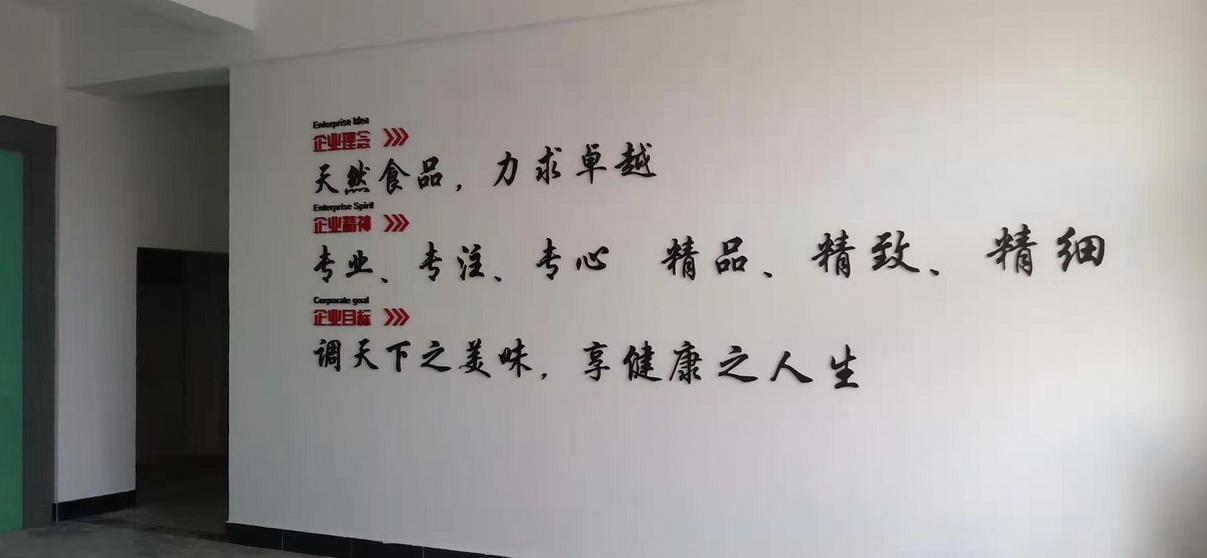 Enterprise Idea
企业理念
天然食品，力求卓越
Enterprise Spirit
企业精神
专业、专注、专心 精品、精致、精细
Corporate goal
企业目标
调天下之美味，享健康之人生